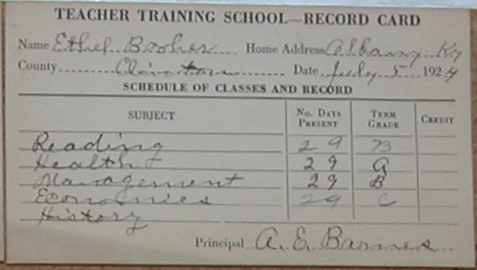 TEACHER TRAINING SCHOOL—RECORD CARD
Name Ethel Booher Home Address Albany Ky
County Clinton Date July 5 1924
SCHEDULE OF CLASSES AND RECORD
SUBJECT No. DAYS PRESENT TERM GRADE CREDIT
Reading 29 B
Health 29 A
Management 29 B
Economics 29 C
History
Principal A. E. Barnes